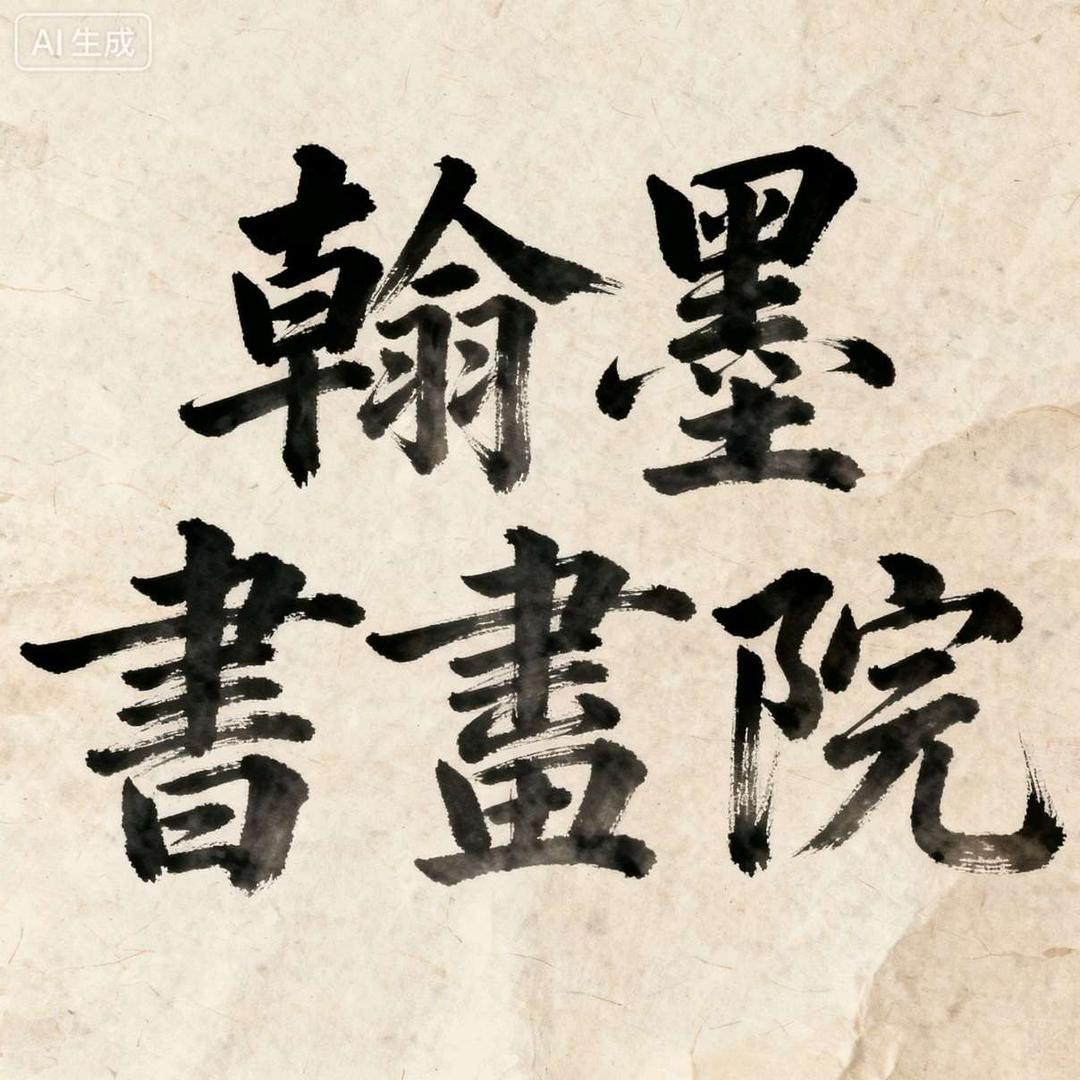 AI生成
翰墨
書畫院